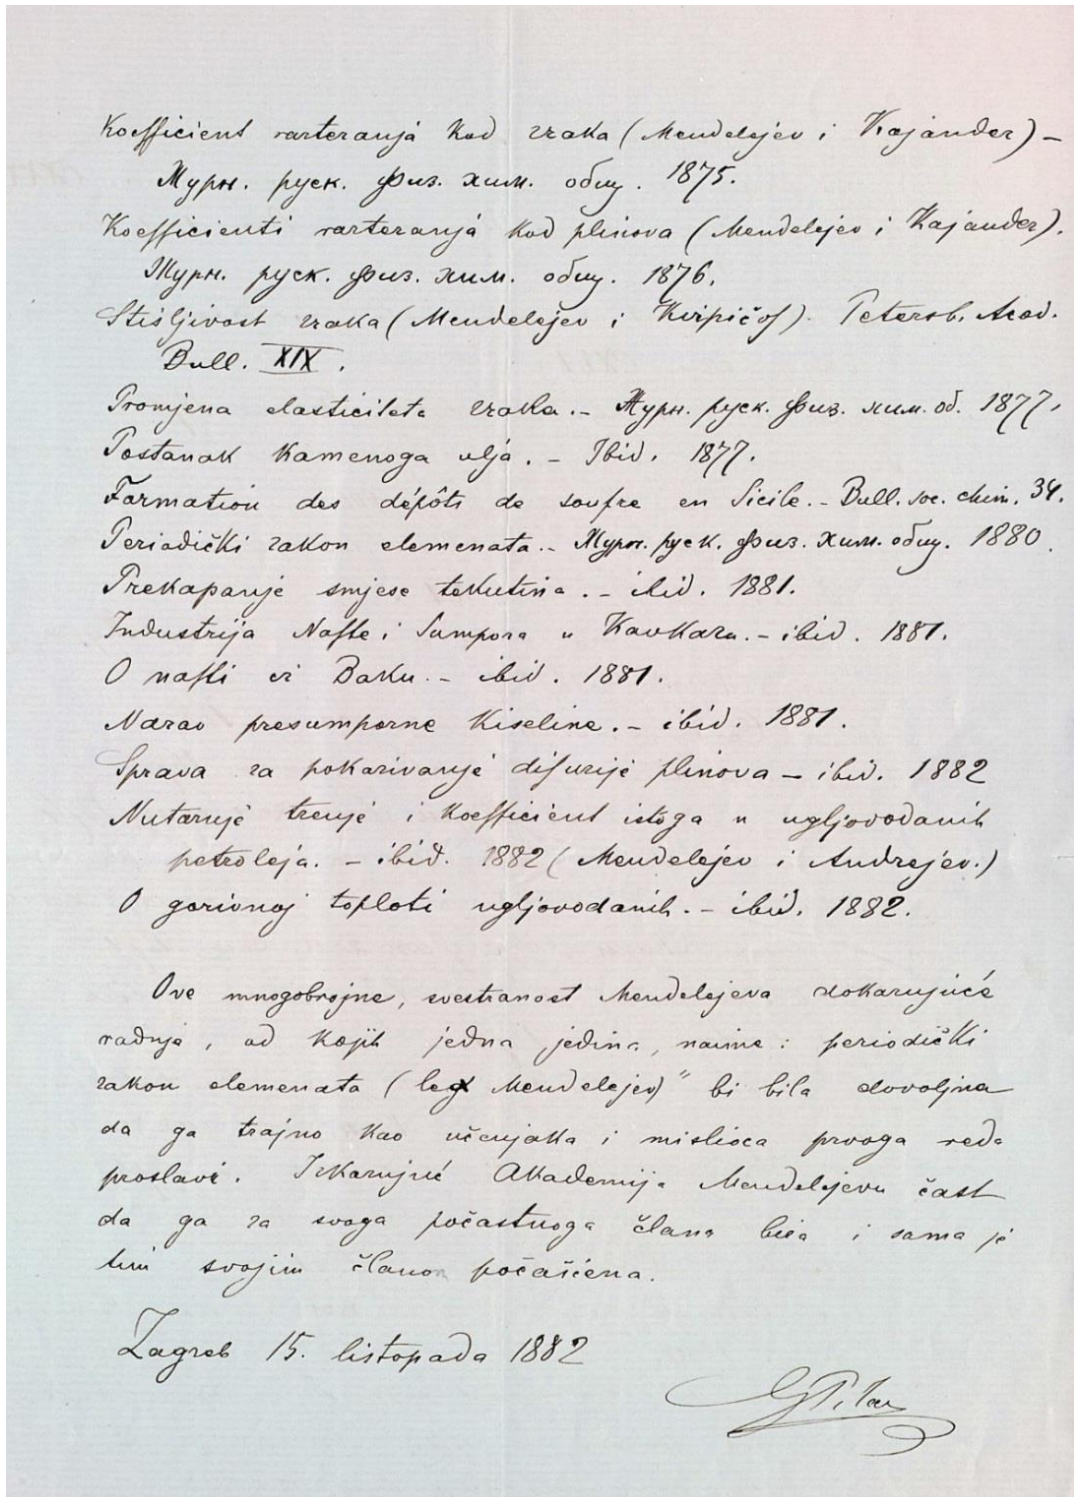 Koefficient rastezanja kod zraka (Mendelejev i Kajander) –
Журн. руск. физ. хим. общ. 1875.
Koefficienti rastezanja kod plinova (Mendelejev i Kajander).
Журн. руск. физ. хим. общ. 1876.
Stisljivost zraka (Mendelejev i Kirpičof). Petersb. Acad.
Bull. XIX.
Promjena elasticiteta zraka. – Журн. руск. физ. хим. об. 1877.
Postanak kamenoga ulja. – Ibid. 1877.
Formation des dépôts de soufre en Sicile. – Bull. soc. chim. 34.
Periodički zakon elemenata. – Журн. руск. физ. хим. общ. 1880.
Prekapanje smjese tekutina. – ibid. 1881.
Industrija Nafte i Sumpora u Kavkazu. – ibid. 1881.
O nafti iz Baku. – ibid. 1881.
Narav presumporne kiseline. – ibid. 1881.
Sprava za pokazivanje difuzije plinova – ibid. 1882
Nutarnje trenje i koefficient istoga u ugljovodanih
petroleja. – ibid. 1882 (Mendelejev i Andrejev.)
O gorivnoj toploti ugljovodanih. – ibid. 1882.
Ove mnogobrojne, svestranost Mendelejeva dokazujuće
radnje, od kojih jedna jedina, naime: periodički
zakon elemenata (lex Mendelejev)" bi bila dovoljna
da ga trajno kao učenjaka i mislioca prvoga reda
proslavi. Izkazujuć Akademija Mendelejevu čast
da ga za svoga počastnoga člana bira i sama je
tim svojim članom počašćena.
Zagreb 15. listopada 1882
GPilar